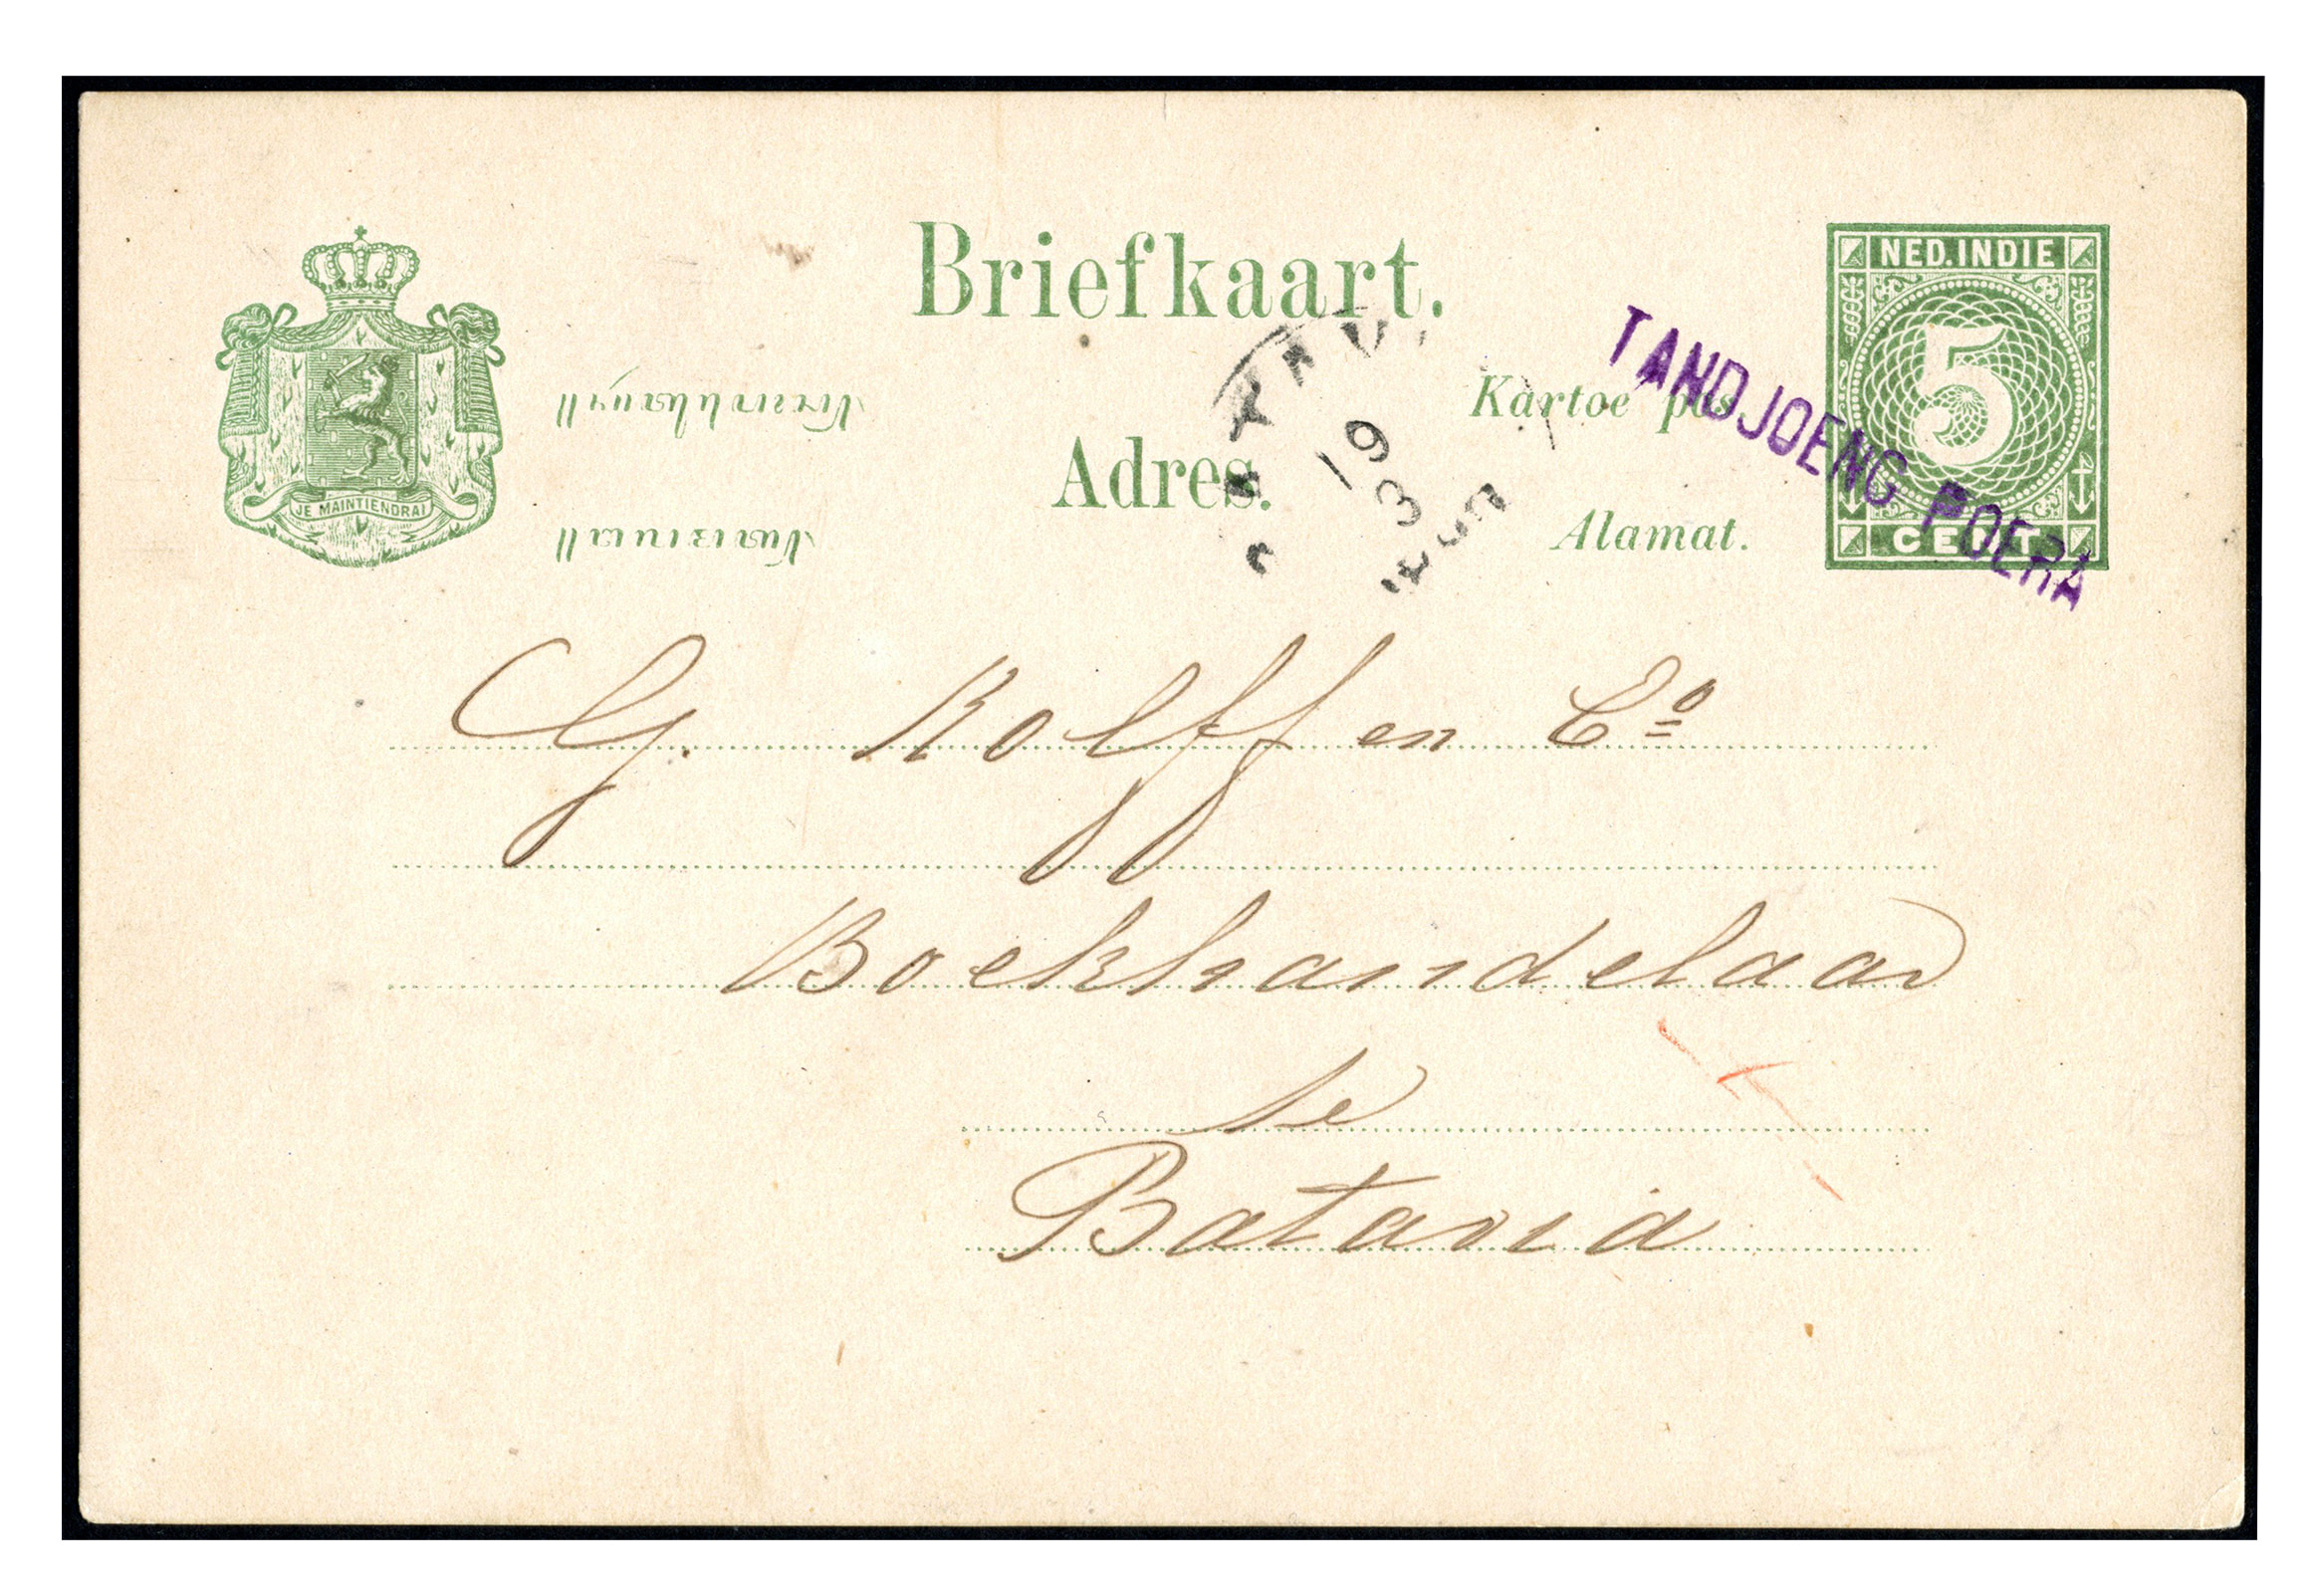 Briefkaart.
NED.INDIE
5
CENT
JE MAINTIENDRAI
Kartoe pos
Adres.
Alamat.
TANDJOENG POERA
19
3
G. Kolff en Co
Boekhandelaar
te
Batavia